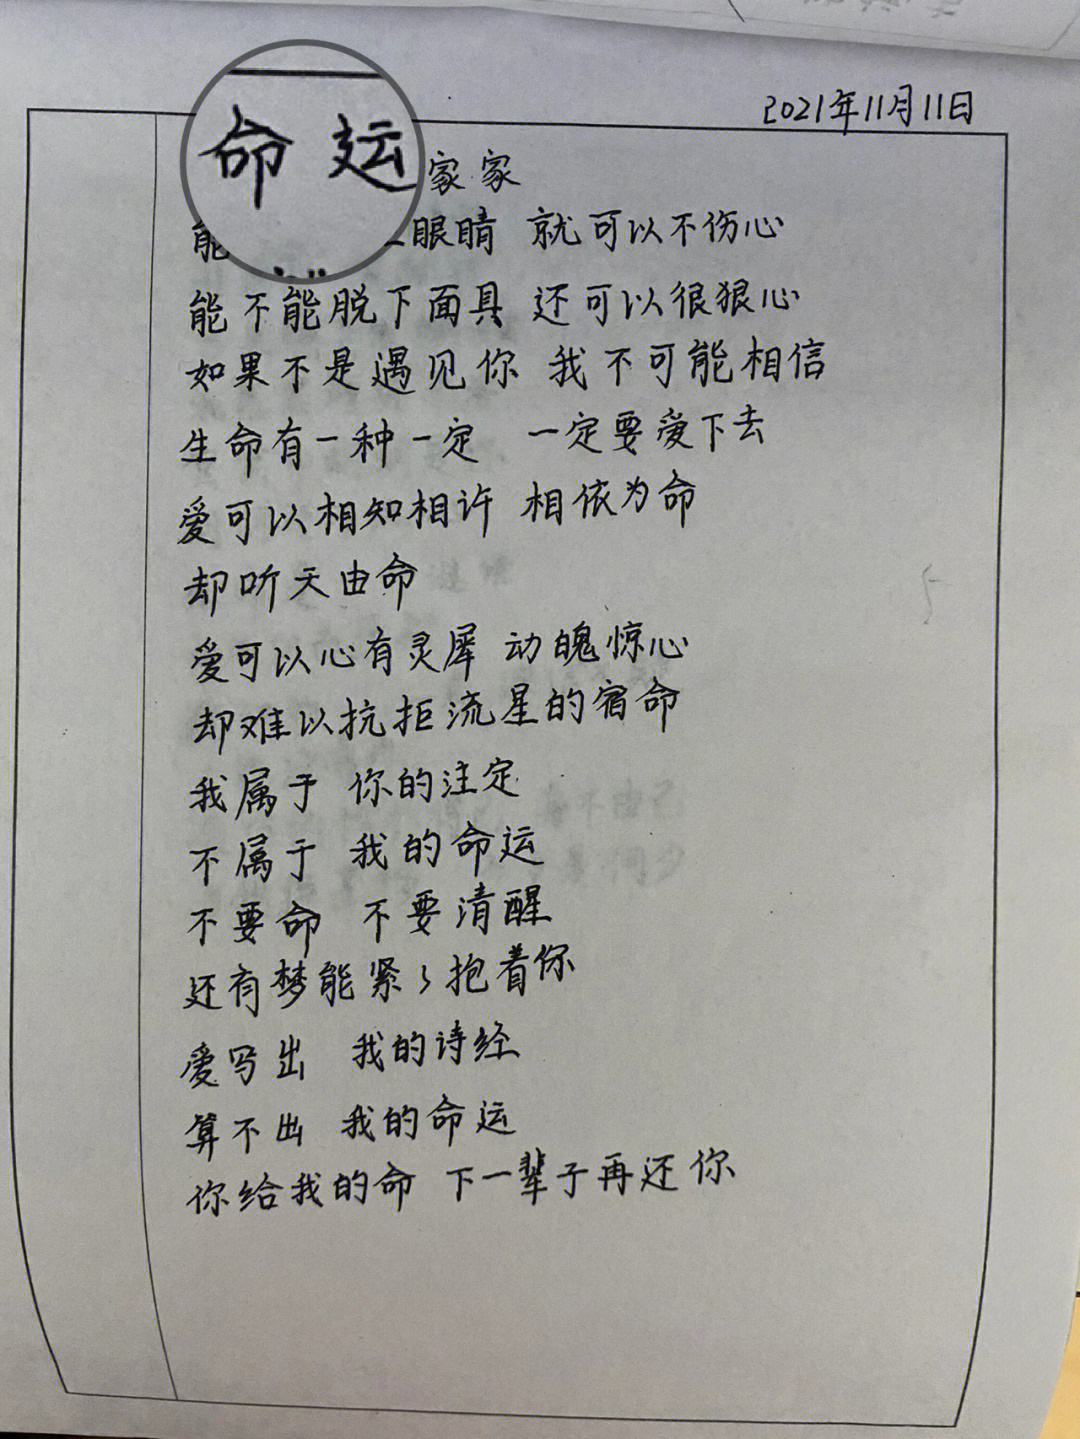 2021年11月11日
命运 家家
能 眼睛 就可以不伤心
能不能脱下面具 还可以很狠心
如果不是遇见你 我不可能相信
生命有一种一定 一定要爱下去
爱可以相知相许 相依为命
却听天由命
爱可以心有灵犀 动魄惊心
却难以抗拒流星的宿命
我属于 你的注定
不属于 我的命运
不要命 不要清醒
还有梦能紧々抱着你
爱写出 我的诗经
算不出 我的命运
你给我的命 下一辈子再还你